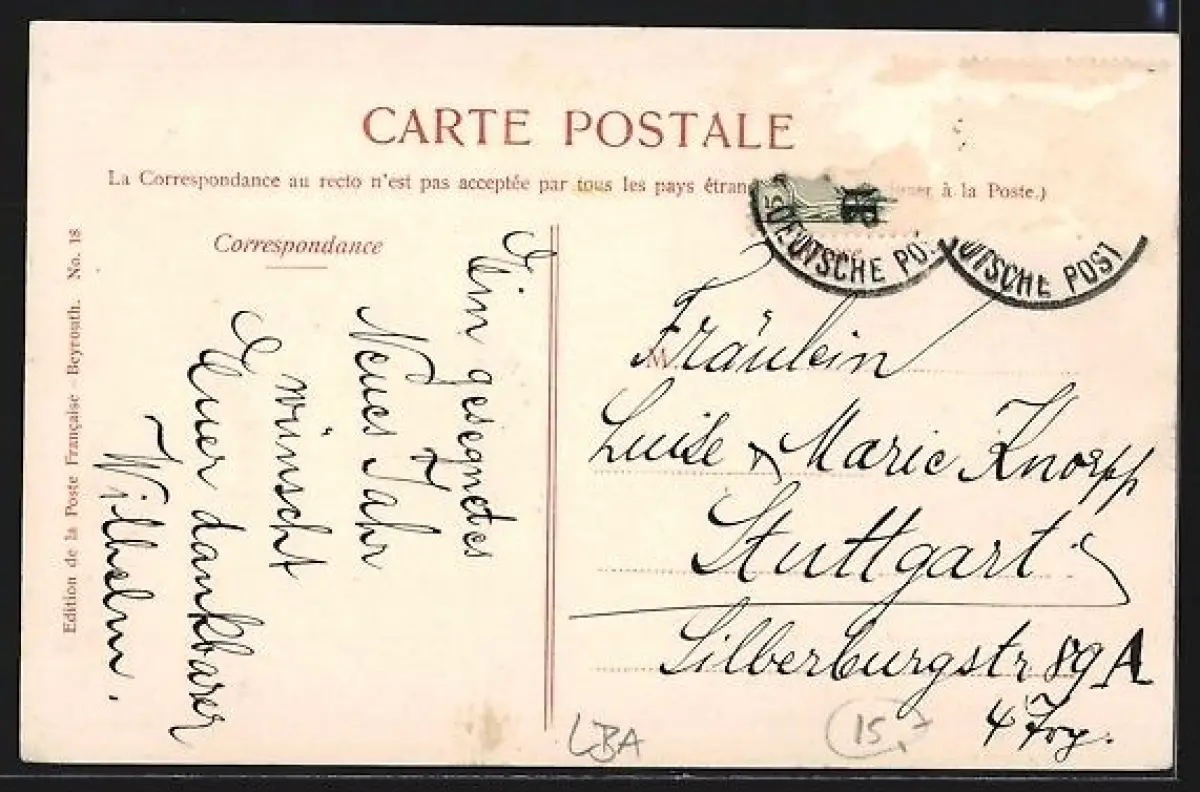 CARTE POSTALE
La Correspondance au recto n'est pas acceptée par tous les pays étran à la Poste.)
DEUTSCHE PO
UTSCHE POST
Correspondance
Ein gesegnetes
Neues Jahr
wünscht
Euer dankbarer
Wilhelm.
Edition de la Poste Française - Beyrouth. No. 18
Fräulein
Luise & Marie Knorpp
Stuttgart
Silberburgstr. 89 A
LBA
15,-